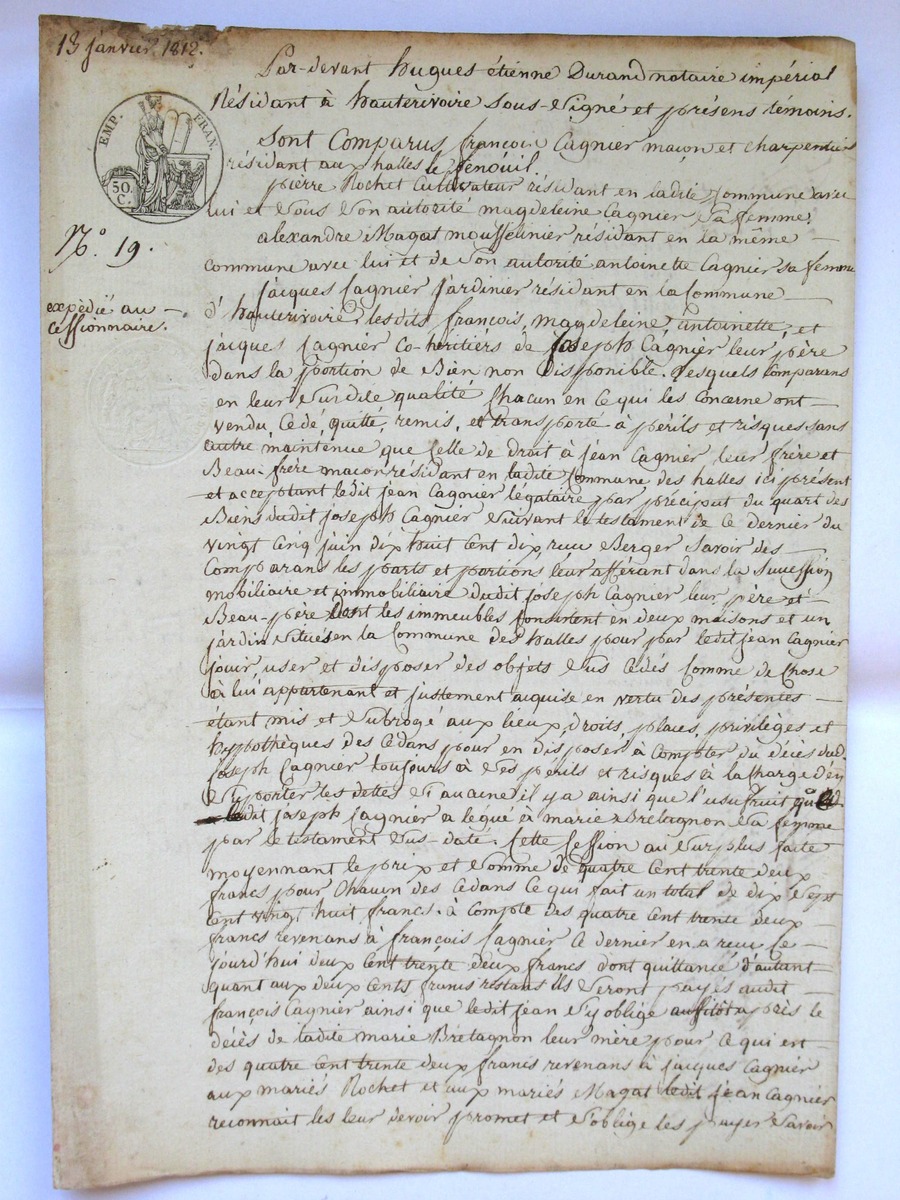 13 janvier 1812.
Par-devant hugues-étienne Durand notaire impérial
Résidant à hauterivoire sous-signé et présens témoins.
EMP. FRAN.
50. C.
Sont Comparus, françois Cagnier maçon et charpentier
résidant aux halles le fenoüil.
pierre Rochet Cultivateur résidant en ladite Commune avec
lui et sous son autorité magdeleine Cagnier sa femme,
N.° 19.
alexandre Magat mousselinier résidant en la même
commune avec lui et de son autorité antoinette Cagnier sa femme
jacques Cagnier jardinier résidant en la Commune
expédié au
cessionnaire.
d'hauterivoire, lesdits françois, magdeleine, antoinette, et
jacques Cagnier co-héritiers de joseph Cagnier leur père
dans la portion de Bien non disponible. Lesquels Comparans
en leur susdite qualité Chacun en ce qui les Concerne ont
vendu, Cédé, quitté, remis, et transporté à périls et risques sans
autre maintenue que Celle de droit à jean Cagnier leur frère et
Beau-frère maçon résidant en ladite Commune des halles ici présent
et acceptant ledit jean Cagnier légataire par préciput du quart des
Biens dudit joseph Cagnier suivant le testament de ce dernier du
vingt Cinq juin dix huit Cent dix reçu Berger Savoir des
Comparans les parts et portions leur afférant dans la succession
mobiliaire et immobiliaire dudit joseph Cagnier leur père et
Beau-père dont les immeubles Consistent en deux maisons et un
jardin situés en la Commune des halles pour par ledit jean Cagnier
jouir user et disposer des objets sus cédés Comme de Chose
à lui appartenant et justement acquise en vertu des présentes
étant mis et subrogé aux lieux, droits, places, privilèges et
hypothèques des Cédans pour en disposer à Compter du décès dud.
joseph Cagnier toujours à ses périls et risques à la Charge d'en
supporter les dettes si aucune il y a ainsi que l'usufruit que
ledit joseph Cagnier a légué à marie Bretagnon sa femme
par le testament sus-daté. Cette Cession au surplus faite
moyennant le prix et somme de quatre Cent trente deux
francs pour Chacun des Cédans Ce qui fait un total de dix sept
Cent vingt huit francs. à Compte des quatre Cent trente deux
francs revenans à françois Cagnier Ce dernier en a reçu Ce
jourd'hui deux Cent trente deux francs dont quittance d'autant
quant aux deux Cents francs restans ils seront payés audit
françois Cagnier ainsi que ledit jean s'y oblige aussitôt après le
décès de ladite marie Bretagnon leur mère pour Ce qui est
des quatre Cent trente deux francs revenans à jacques Cagnier
aux mariés Rochet et aux mariés Magat ledit jean Cagnier
reconnait les leur devoir promet et s'oblige les payer Savoir